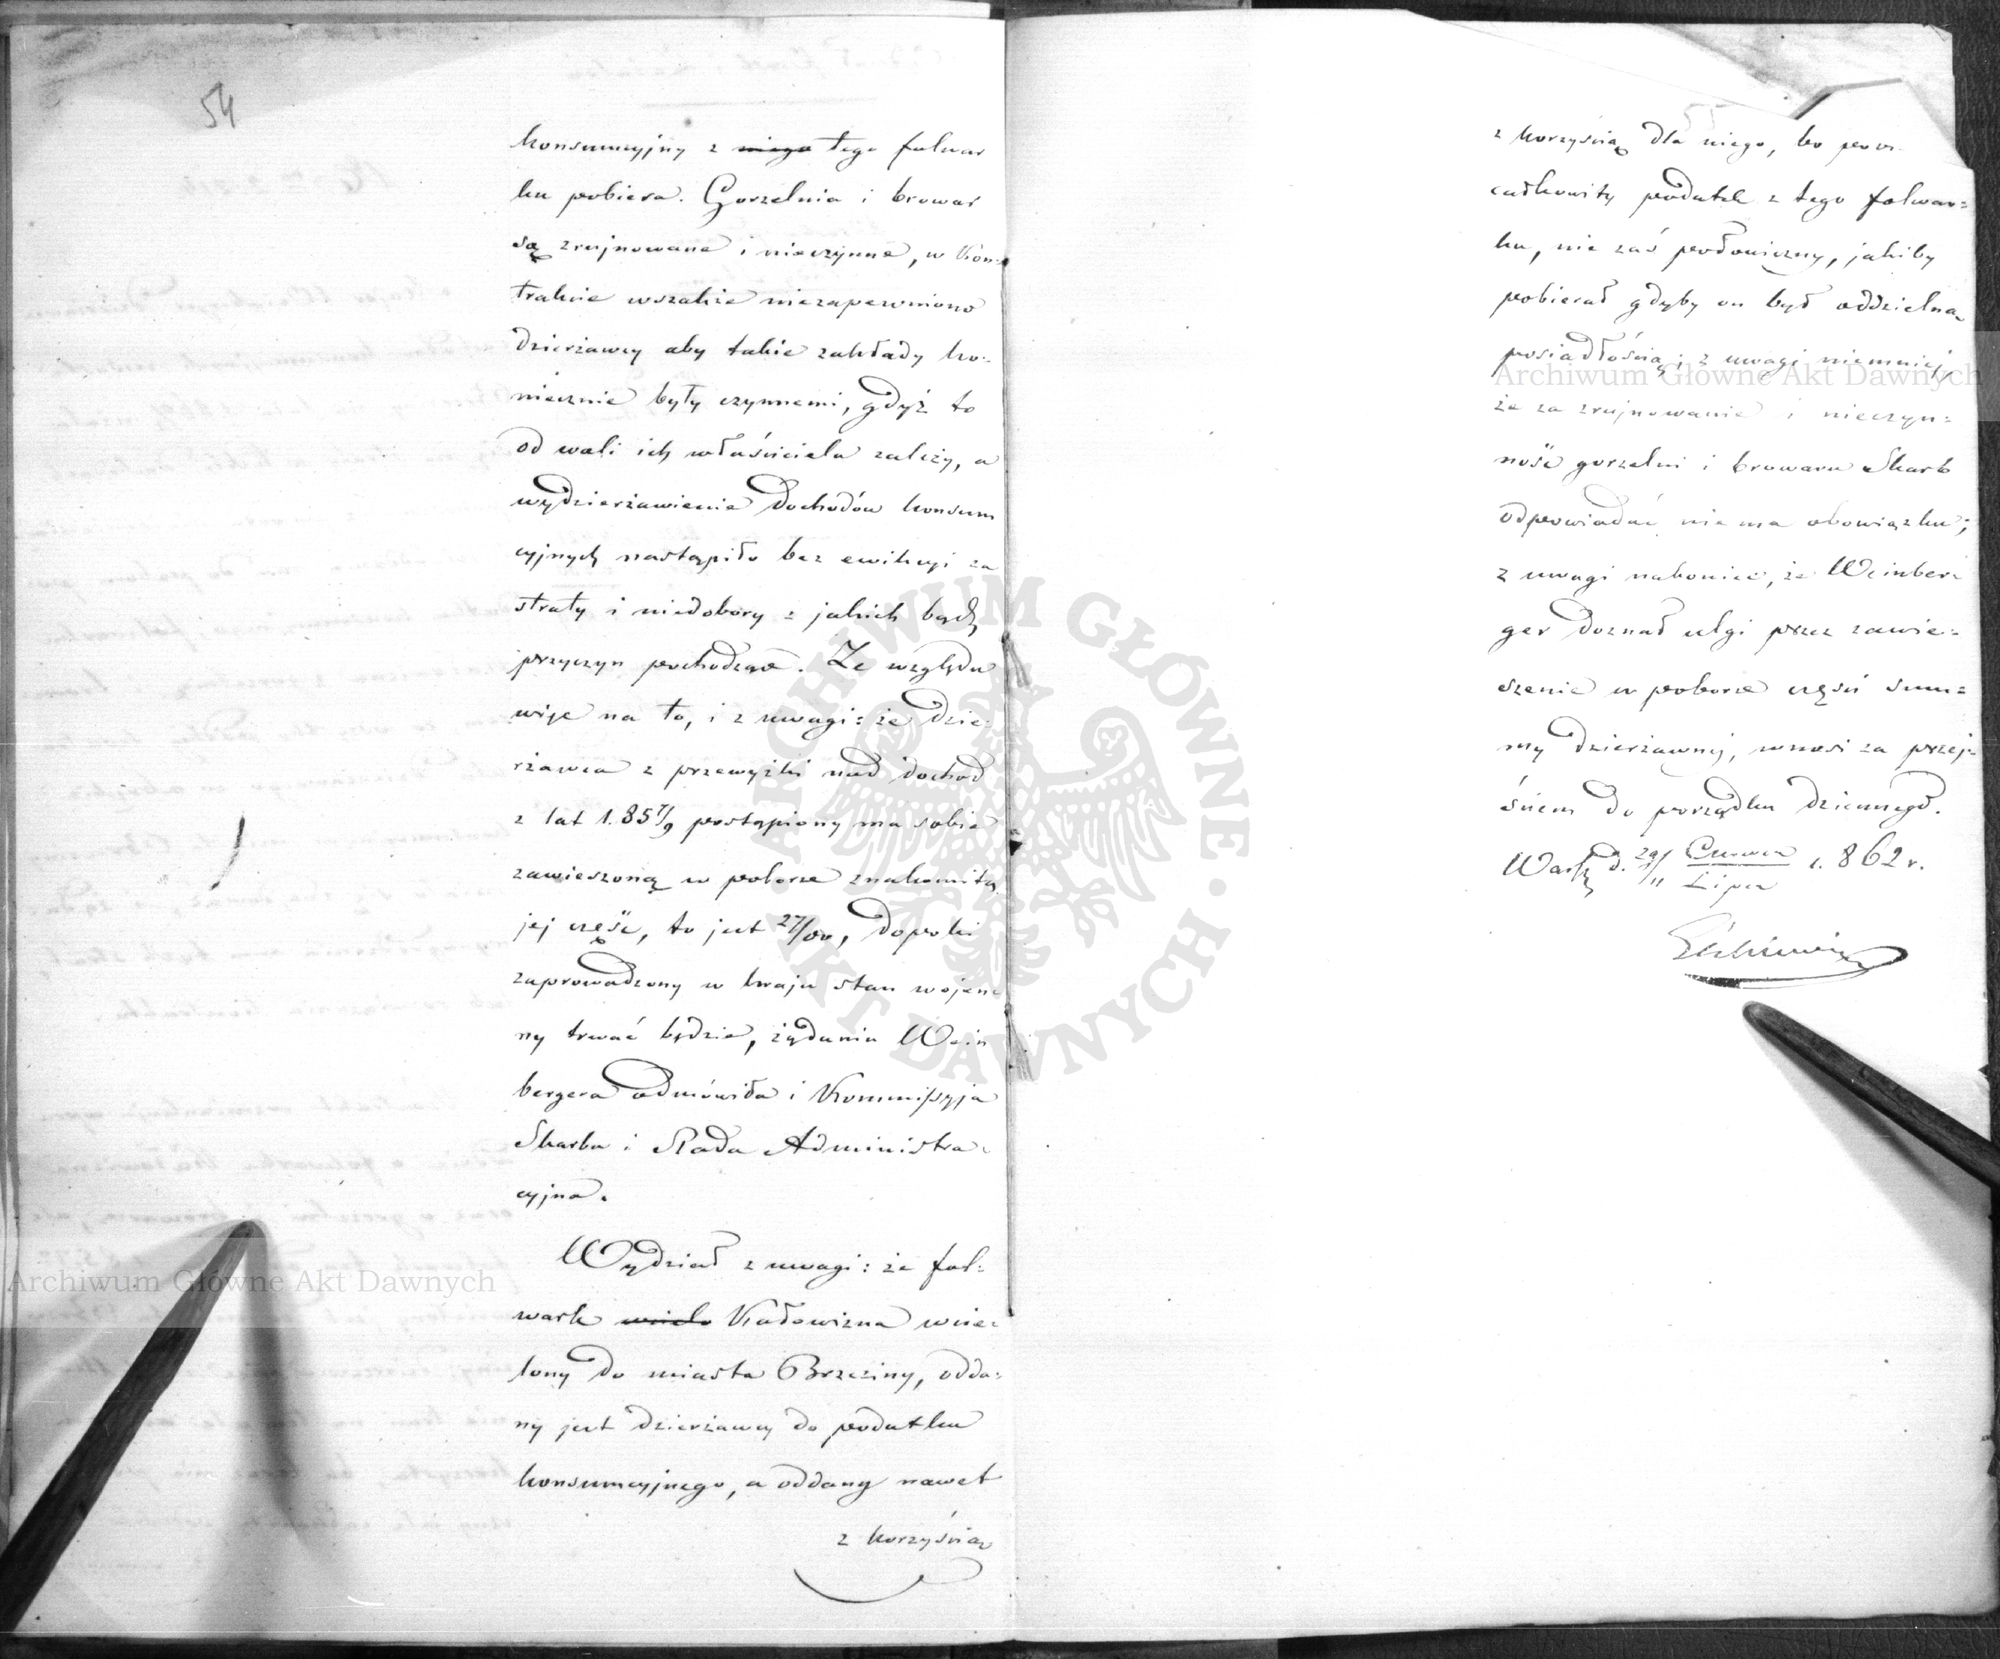 54
konsumcyjny z niego tego folwar
ku pobiera. Gorzelnia i browar
są zrujnowane i nieczynne, w kon-
trakcie wszakże niezapewniono
dzierżawcy aby takie zakłady ko-
niecznie były czynnemi, gdyż to
od woli ich właściciela zależy, a
wydzierżawienie dochodów konsum
cyjnych nastąpiło bez ewikcyi za
straty i niedobory z jakich bądź
przyczyn pochodzące. Ze względu
więc na to, i z uwagi: że dzie-
rżawca z przewyżki nad dochód
z lat 1.857/9 postąpiony ma sobie
zawieszoną w poborze znakomitą
jej część, to jest 27/00, dopóki
zaprowadzony w kraju stan wojen-
ny trwać będzie, żądaniu Wein
bergera odmówiła i Kommissyja
Skarbu i Rada Administra-
cyjna.
Wydział z uwagi: że fol-
wark Kałowizna wcie-
lony do miasta Brzeziny, odda-
ny jest dzierżawcy do podatku
konsumcyjnego, a oddany nawet
z korzyścią
55
z korzyścią dla niego, bo pow.
całkowity podatek z tego folwar-
ku, nie zaś połowiczny, jakiby
pobierał gdyby on był oddzielną
posiadłością; z uwagi niemniej,
że za zrujnowanie i nieczyn-
ność gorzelni i browaru Skarb
odpowiadać nie ma obowiązku;
z uwagi nakoniec, że Weinber-
ger doznał ulgi przez zawie-
szenie w poborze części sum-
my dzierżawnej, wnosi za przej-
ściem do porządku dziennego.
Warsz d. 29/11 Czerwca/Lipca 1.862 r.
Archiwum Główne Akt Dawnych
Archiwum Główne Akt Dawnych
ARCHIWUM GŁÓWNE
AKT DAWNYCH